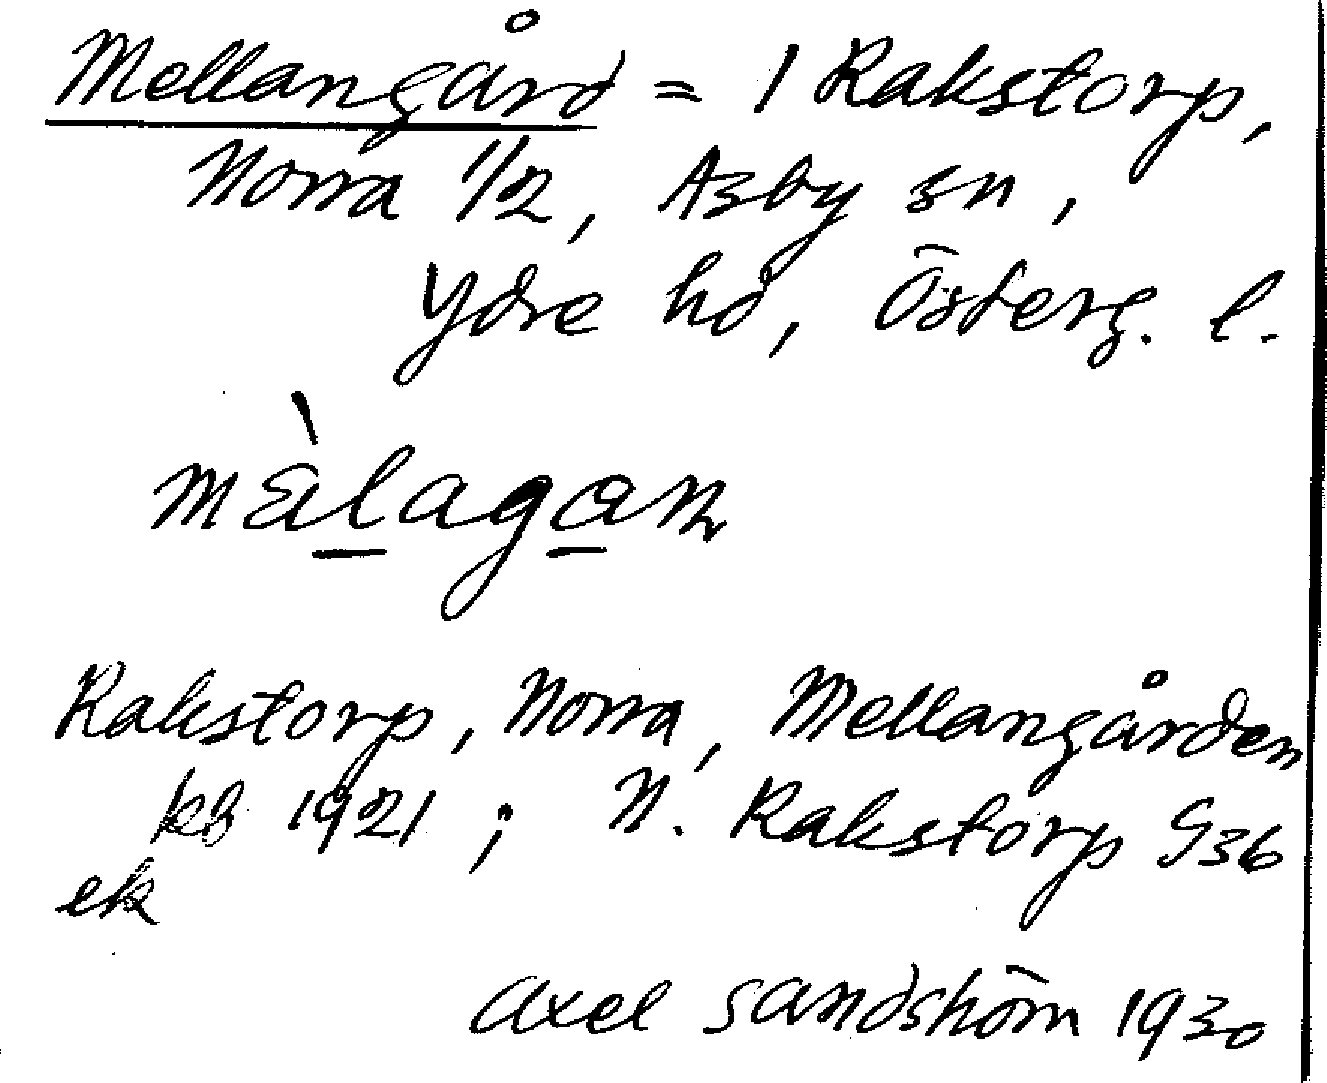 Mellangård = 1 Rakstorp,
Norra 1/2, Asby sn,
Ydre hd, Österg. l.
mä̀lagan
Rakstorp, Norra, Mellangården
kb 1921; N. Rakstorp G36
ek
Axel Sandström 1930